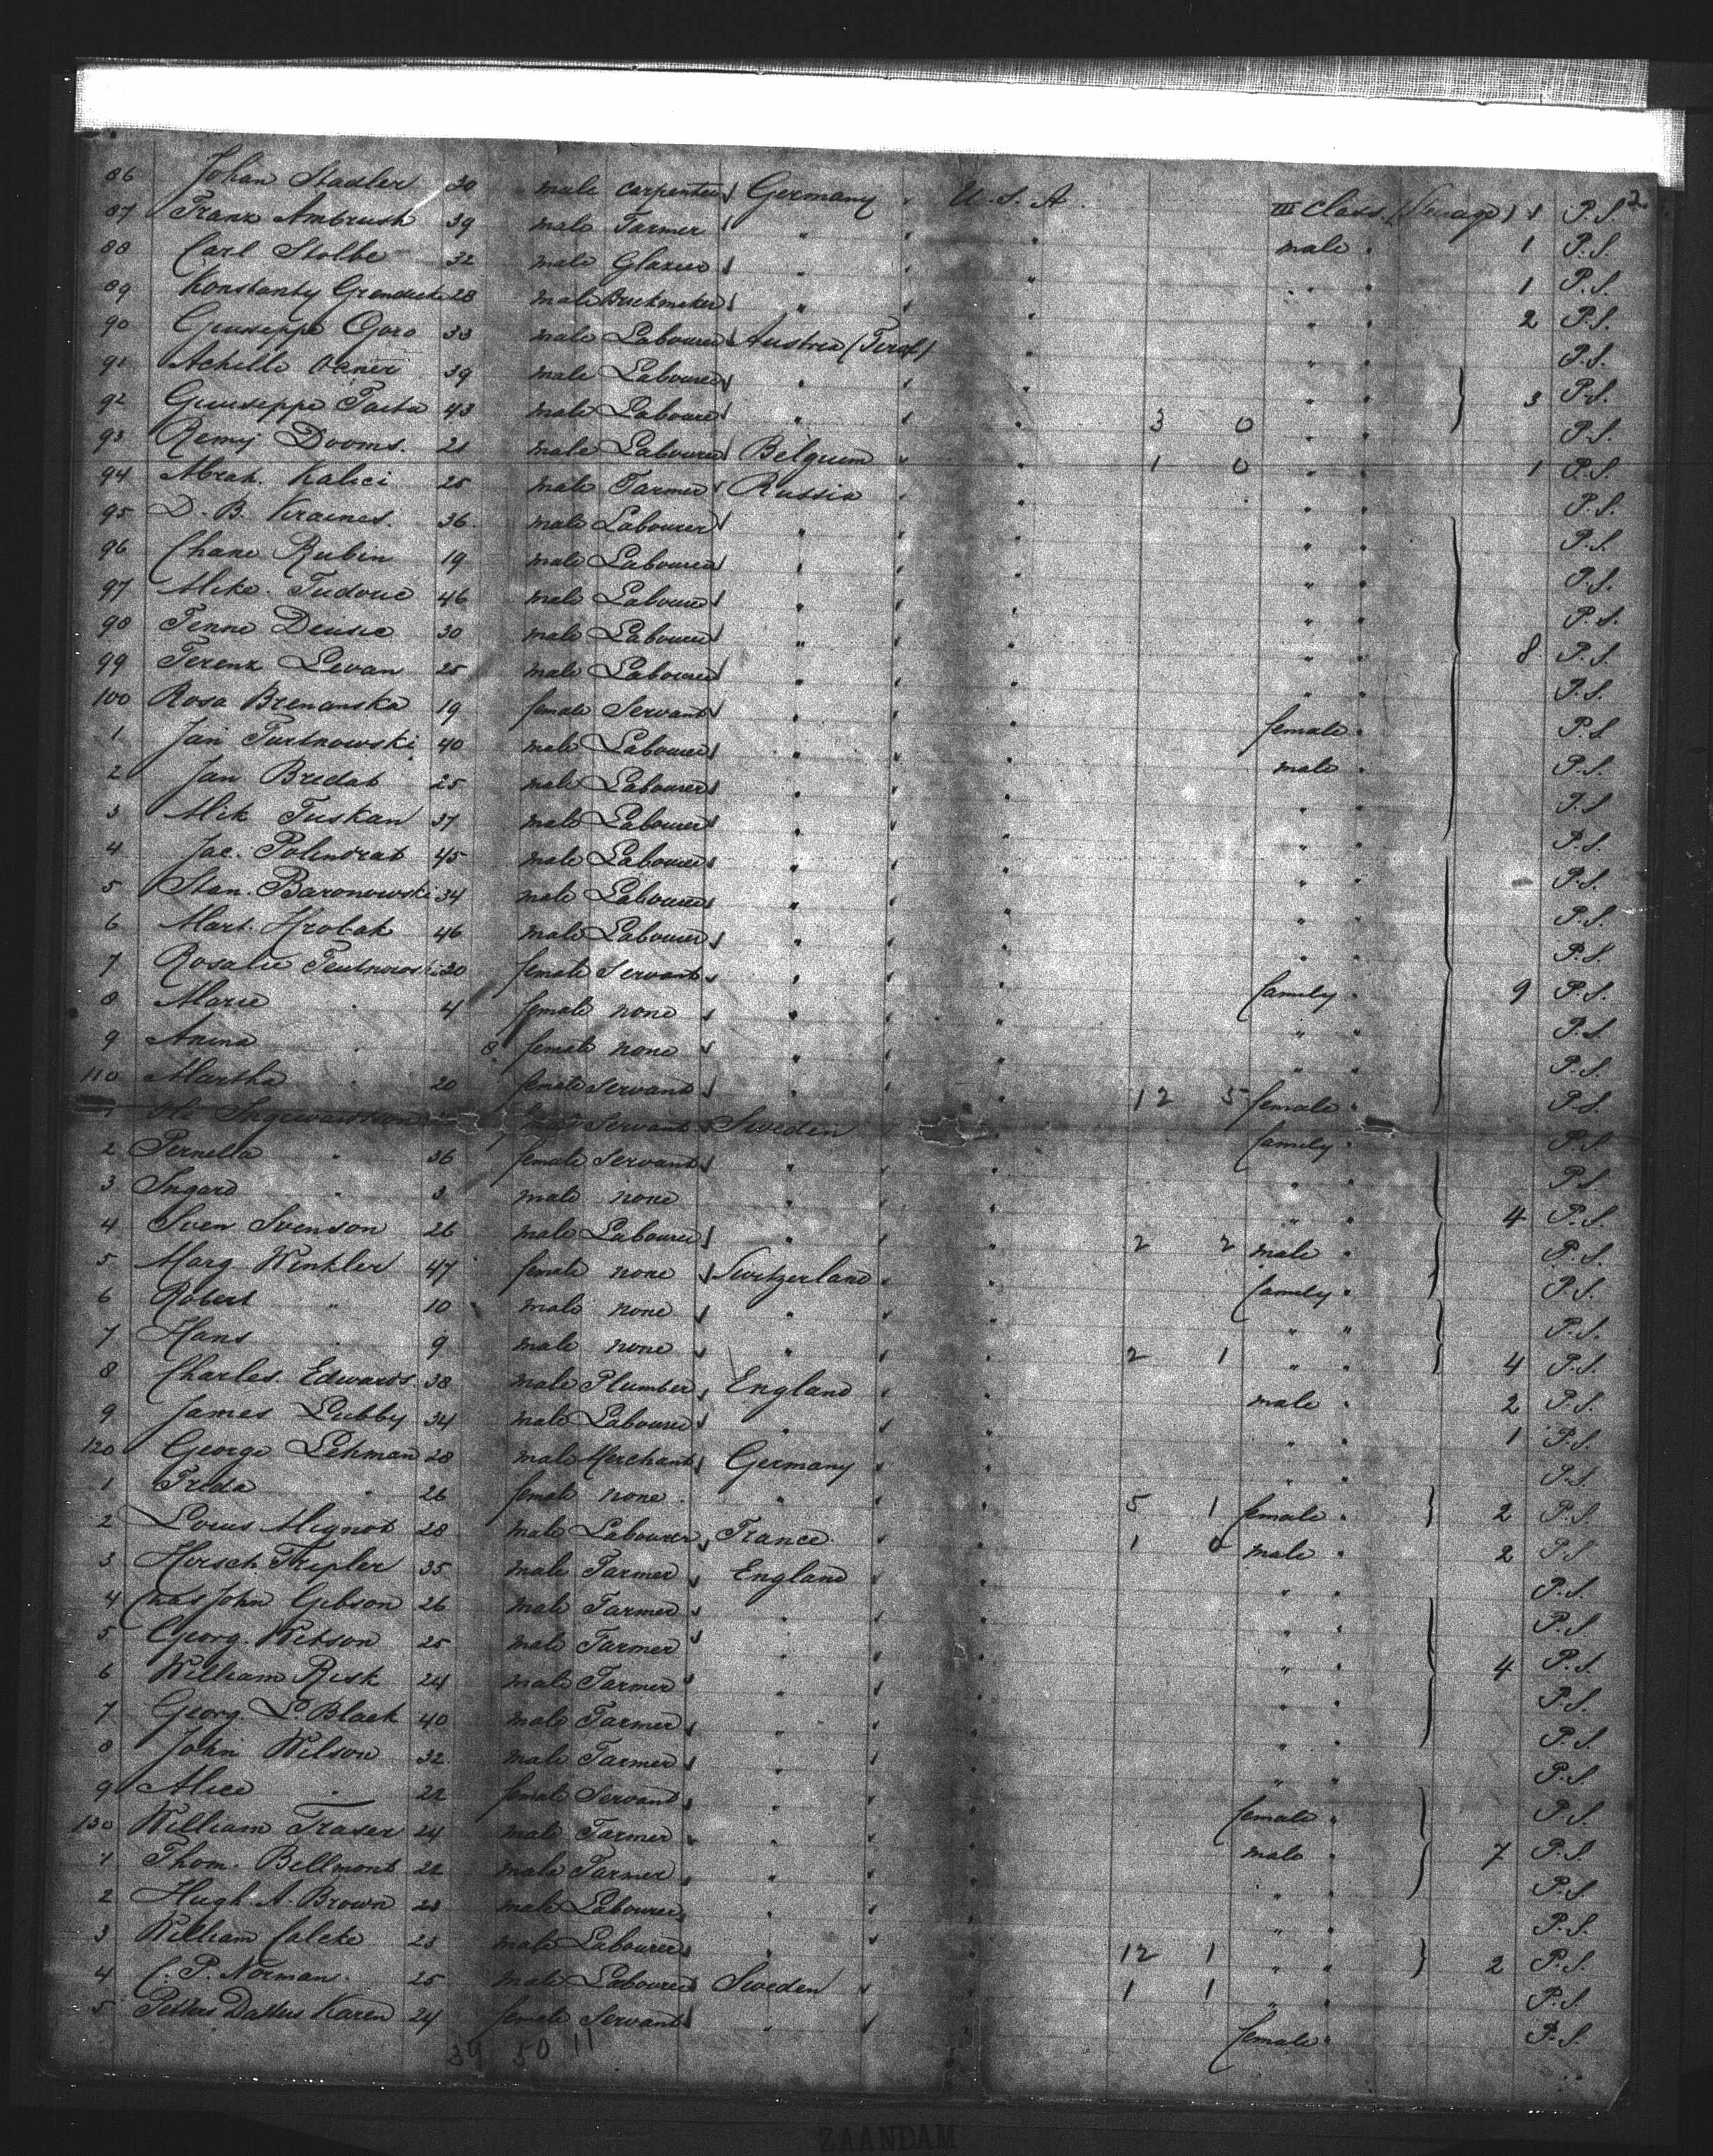 86 Johan Stadler 30 male carpenter Germany U.S.A. III Class (Steerage) 1 P.S. 2
87 Franz Ambrush 39 male Farmer " " " male " 1 P.S.
88 Carl Stolbe 32 male Glazier " " " " " 1 P.S.
89 Konstanty 28 male " " " " " 2 P.S.
90 Giuseppe Goro 33 male Labourer Austria (Tirol) " " " P.S.
91 Achille 39 male Labourer " " " " " 3 P.S.
92 Giuseppe 43 male Labourer " " " 3 0 " " P.S.
93 Remij Dooms. 21 male Labourer Belgium " " 1 0 " " 1 P.S.
94 Abrah. Kalici 25 male Farmer Russia " " " " P.S.
95 D. B. Kraines. 36 male Labourer " " " " " P.S.
96 Chane Rubin 19 male Labourer " " " " " P.S.
97 Mike. 46 male Labourer " " " " " P.S.
98 30 male Labourer " " " " " 8 P.S.
99 Ferenz Levan 25 male Labourer " " " " " P.S.
100 Rosa Brenanska 19 female Servant " " " female " P.S.
1 Jan 40 male Labourer " " " male " P.S.
2 Jan Bredat 25 male Labourer " " " " " P.S.
3 Mik Tuskan 37 male Labourer " " " " " P.S.
4 Jac. 45 male Labourer " " " " " P.S.
5 Stan. Baronowski 34 male Labourer " " " " " P.S.
6 Mart. Hrobak 46 male Labourer " " " " " P.S.
7 Rosalie 20 female Servant " " " family " 9 P.S.
8 Marie " 4 female none " " " " " P.S.
9 Anina " 8 female none " " " " " P.S.
110 Martha " 20 female Servant " " " 12 5 female " P.S.
1 Servant Sweden " family " P.S.
2 Pernella " 36 female Servant " " " " " P.S.
3 Ingard " 3 male none " " " " 4 P.S.
4 Sven Svenson 26 male Labourer " " " 2 2 male " P.S.
5 Marg Winkler 47 female none Switzerland " " family " P.S.
6 Robert " 10 male none " " " " " P.S.
7 Hans " 9 male none " " " 2 1 " " 4 P.S.
8 Charles. Edwards. 38 male Plumber England " " male " 2 P.S.
9 James Lubby 34 male Labourer " " " " " 1 P.S.
120 George Lehman 28 male Merchant Germany " " " " P.S.
1 Freda " 26 female none " " " 5 1 female " 2 P.S.
2 Louis Mignot 28 male Labourer France. " " 1 0 male " 2 P.S.
3 Hersch 35 male Farmer England " " " " P.S.
4 Chas John Gibson 26 male Farmer " " " " " P.S.
5 Georg. 25 male Farmer " " " " " 4 P.S.
6 William Risk 24 male Farmer " " " " " P.S.
7 Georg. L. Black 40 male Farmer " " " " " P.S.
8 John Wilson 32 male Farmer " " " " " P.S.
9 Alice " 22 female Servant " " " female " P.S.
130 William Fraser 24 male Farmer " " " male " 7 P.S.
1 Thom. Bellmont 22 male Farmer " " " " " P.S.
2 Hugh. A. Brown 23 male Labourer " " " " " P.S.
3 William 23 male Labourer " " 12 1 " " 2 P.S.
4 C. P. Norman. 25 male Labourer Sweden " 1 1 " " P.S.
5 Karen 24 female Servant " " " female " P.S.
39 50 11
ZAANDAM